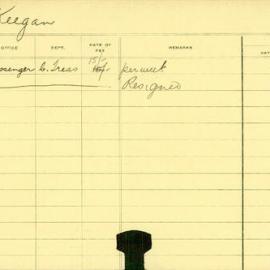 Keegan
OFFICE DEPT. RATE OF PAY REMARKS
15/-
ssenger C. Treas per week
Resigned